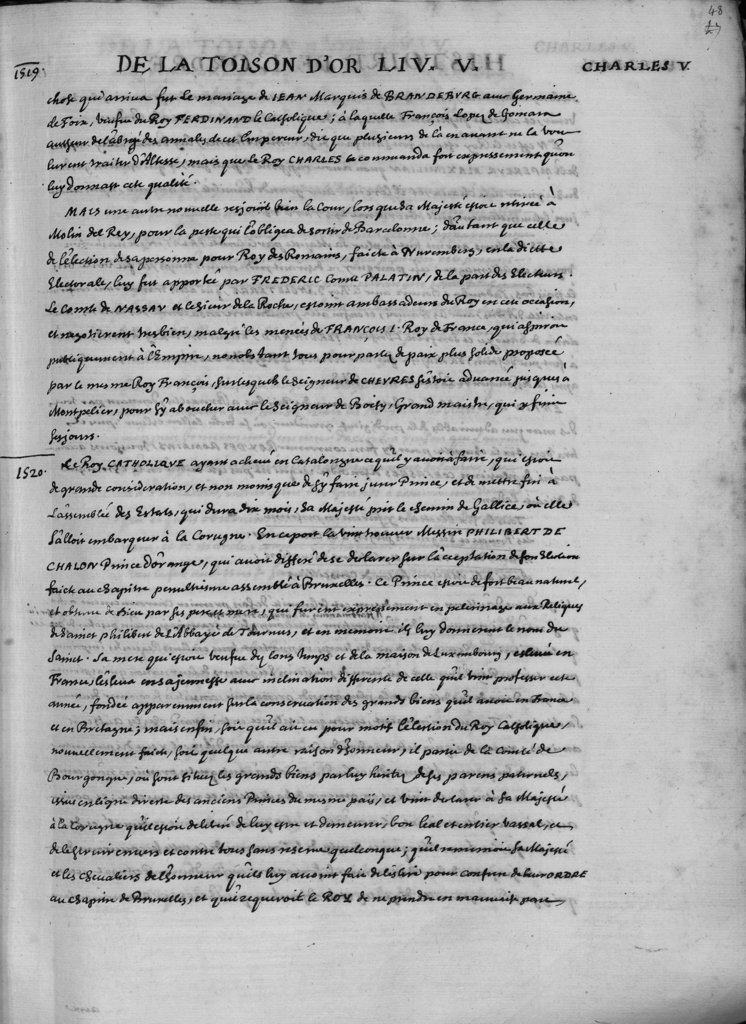 48
1519.
DE LA TOISON D'OR LIV. V.
CHARLES V.
chose qui arriva fut le mariage de IEAN Marquis de BRANDEBVRG avec Germaine
de Foix, veufve du Roy FERDINAND le Catholique; à laquelle François Lopez de Gomara
autheur de l'abregé des annales de cet Empereur, die que plusieurs de la en avant ne la vou
lurent traiter d'Altesse, mais que le Roy CHARLES le commanda fort expressement qu'on
luy donnast cete qualité.
MAIS une autre nouvelle resjouit bien la Cour, lors que sa Majesté estoit retirée à
Molin del Rey, pour la peste qui l'obligea de sortir de Barcelonne; d'autant que celle
de l'election de sa personne pour Roy des Romains, faicte à Nuremberg, en la diette
Electorale, luy fut apportée par FREDERIC Comte PALATIN, de la part des Electeurs.
Le Comte de NASSAV et le Sieur de la Roche, estoint ambassadeurs du Roy en cete occasion,
et negotierent tres bien, malgré les menées de FRANCOIS I. Roy de France, qui aspiroit
publiquement à l'Empire, nonobstant tous pourparlez de paix plus solide proposée
par le mesme Roy François, sur lesquels le Seigneur de CHEVRES s'estoit advancé jusques à
Montpelier, pour s'y aboucher avec le Seigneur de Boisy, Grand maistre, qui y finit
ses jours.
1520.
Le Roy CATHOLIQVE ayant achevé en Catalongne ce qu'il y avoit à faire, qui estoit
de grande consideration, et non moins que de s'y faire jurer Prince, et de mettre fin à
l'assemblée des Estats, qui dura dix mois, sa Majesté prit le chemin de Gallice, où elle
s'alloit embarquer à la Corugne. En ce port la vint trouver Messire PHILIBERT DE
CHALON Prince d'Orange, qui avoit differé de se declarer sur l'acceptation de son Election
faicte au chapitre penultiesme assemblé à Bruxelles. Ce Prince estoit de fort beau naturel,
et obtenu de Dieu par ses pere et mere, qui furent expressement en pelerinage aux Reliques
de Sainct Philibert de l'Abbaye de Tournus, et en memoire ils luy donnerent le nom du
Sainct. Sa mere qui estoit veufve dez long temps et de la maison de Luxembourg, eslevée en
France, l'esleva en sa jeunesse avec inclination differente de celle qu'il vint professer cete
année, fondée apparemment sur la conservation des grands biens qu'il avoit en France
et en Bretagne; mais enfin, soit qu'il ait eu pour motif l'election du Roy Catholique,
nouvellement faicte, soit quelque autre raison d'honneur, il partit de la Comté de
Bourgongne, où sont situez les grands biens par luy heritez de ses parens paternels,
issus en ligne directe des anciens Princes du mesme païs, et vint declarer à sa Majesté
à la Corugne qu'il estoit deliberé de luy estre et demeurer, bon leal et entier vassal, et
de le servir envers et contre tous sans reserve quelconque; qu'il remercioit sa Majesté
et les chevaliers de l'honneur qu'ils luy avoint fait de l'eslire pour confrere de leur ORDRE
au chapitre de Bruxelles, et qu'il requeroit le ROY de ne prendre en mauvaise part,